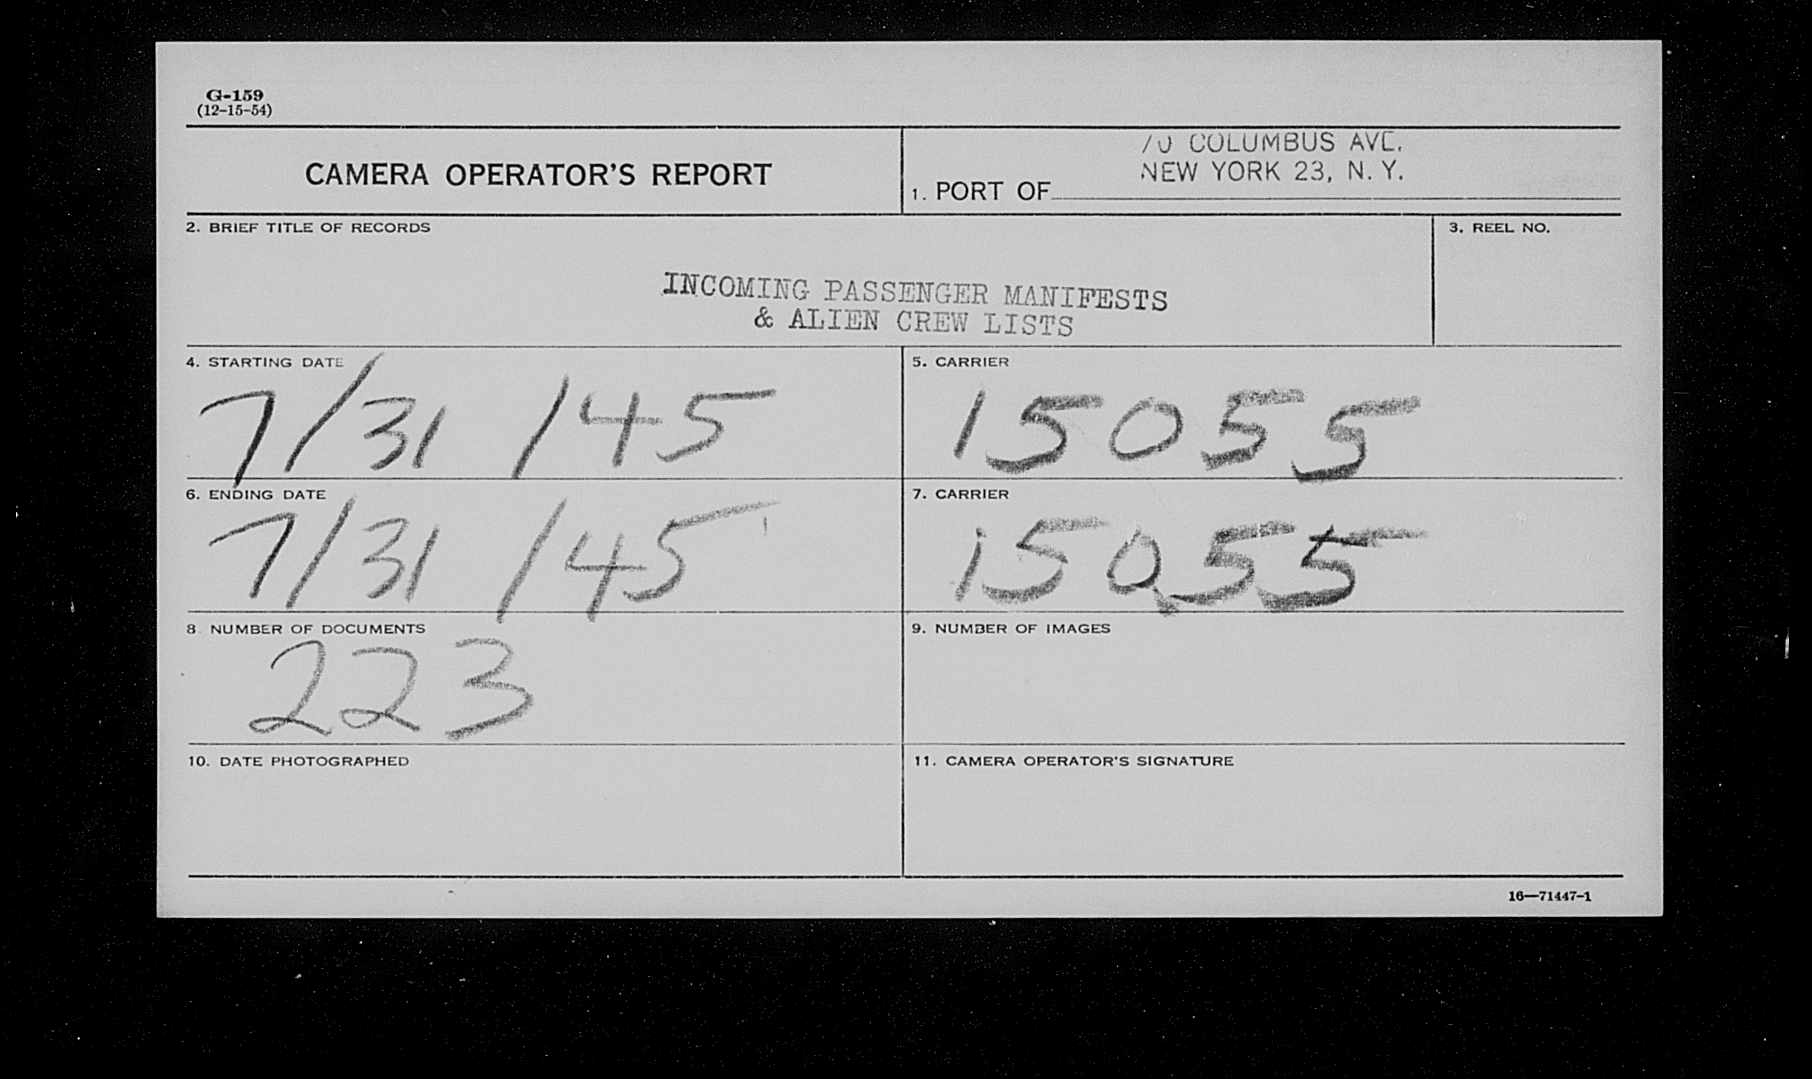 G-159
(12-15-54)
CAMERA OPERATOR'S REPORT
70 COLUMBUS AVE.
NEW YORK 23, N. Y.
1. PORT OF
2. BRIEF TITLE OF RECORDS
3. REEL NO.
INCOMING PASSENGER MANIFESTS
& ALIEN CREW LISTS
4. STARTING DATE
7/31/45
5. CARRIER
15055
6. ENDING DATE
7/31/45
7. CARRIER
15055
8. NUMBER OF DOCUMENTS
223
9. NUMBER OF IMAGES
10. DATE PHOTOGRAPHED
11. CAMERA OPERATOR'S SIGNATURE
16—71447-1